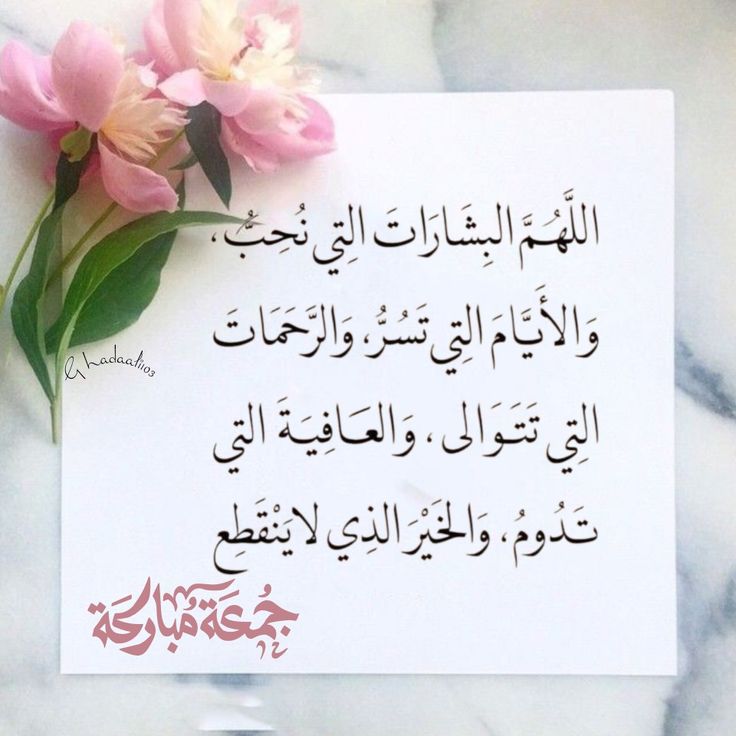 اللَّهُمَّ البِشَارَاتَ التِي نُحِبُّ،
وَالأَيَّامَ التِي تَسُرُّ، وَالرَّحَمَاتَ
التِي تَتَوَالى، وَالعَافِيَةَ التِي
تَدُومُ، وَالخَيْرَ الذِي لا يَنْقَطِع
جُمعَة مُباركَة
Ghadaalii03